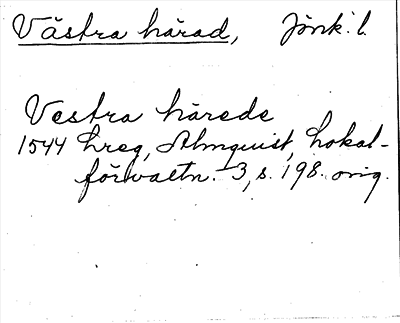 Västra härad, Jönk. l.
Vestra härede
1544 hreg, Almquist, Lokal-
förvaltn. 3, s. 198. orig.